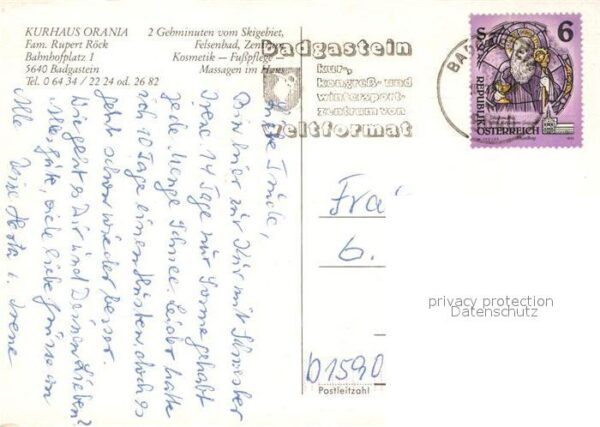 KURHAUS ORANIA
Fam. Rupert Röck
Bahnhofplatz 1
5640 Badgastein
Tel. 0 64 34 / 22 24 od. 26 82
2 Gehminuten vom Skigebiet,
Felsenbad,
Kosmetik – Fußpflege
Massagen im Haus
Badgastein
kur-,
kongreß- und
wintersport-
zentrum von
Weltformat
S 6
REPUBLIK
ÖSTERREICH
Liebe Trude,
Bin hier zur Kur mit Schwester
Irene. 14 Tage nur Sonne gehabt
jede Menge Schnee. Leider hatte
ich 10 Tage einen Husten, doch es
geht schon wieder besser.
Wie geht es Dir und Deinen Lieben?
Alles Gute, viele liebe Grüsse an
Alle Deine Herta u. Irene
Fra
6.
D1590
Postleitzahl
privacy protection
Datenschutz